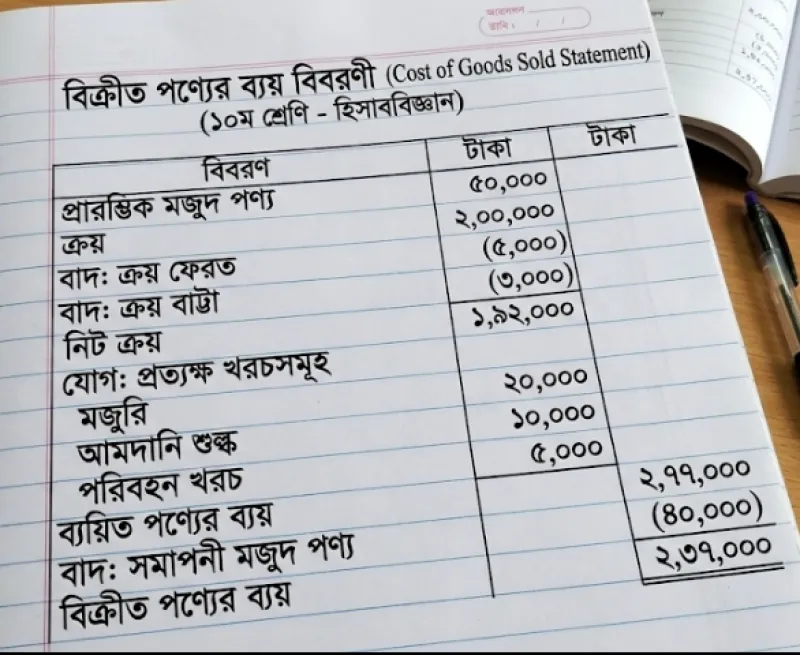 বিক্রীত পণ্যের ব্যয় বিবরণী (Cost of Goods Sold Statement)
(১০ম শ্রেণি - হিসাববিজ্ঞান)
বিবরণ টাকা টাকা
প্রারম্ভিক মজুদ পণ্য ৫০,০০০
ক্রয় ২,০০,০০০
বাদ: ক্রয় ফেরত (৫,০০০)
বাদ: ক্রয় বাট্টা (৩,০০০)
নিট ক্রয় ১,৯২,০০০
যোগ: প্রত্যক্ষ খরচসমূহ
মজুরি ২০,০০০
আমদানি শুল্ক ১০,০০০
পরিবহন খরচ ৫,০০০
ব্যয়িত পণ্যের ব্যয় ২,৭৭,০০০
বাদ: সমাপনী মজুদ পণ্য (৪০,০০০)
বিক্রীত পণ্যের ব্যয় ২,৩৭,০০০